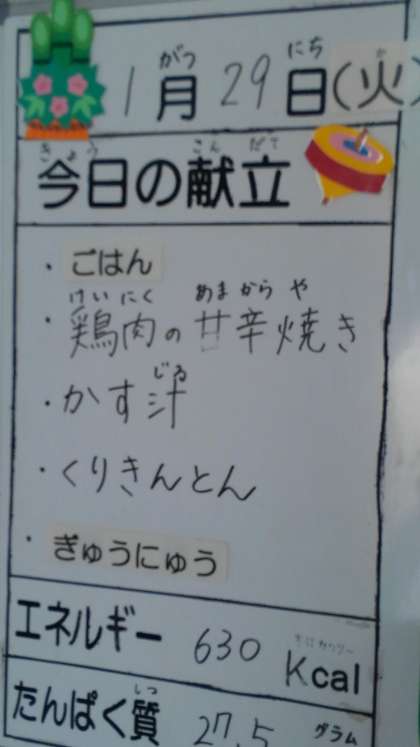 がつ にち か
1月29日(火)
きょう こん だて
今日の献立
・ごはん
けいにく あまからや
・鶏肉の甘辛焼き
じる
・かす汁
・くりきんとん
・ぎゅうにゅう
キロカロリー
エネルギー 630 Kcal
しつ
たんぱく質 27.5 グラム